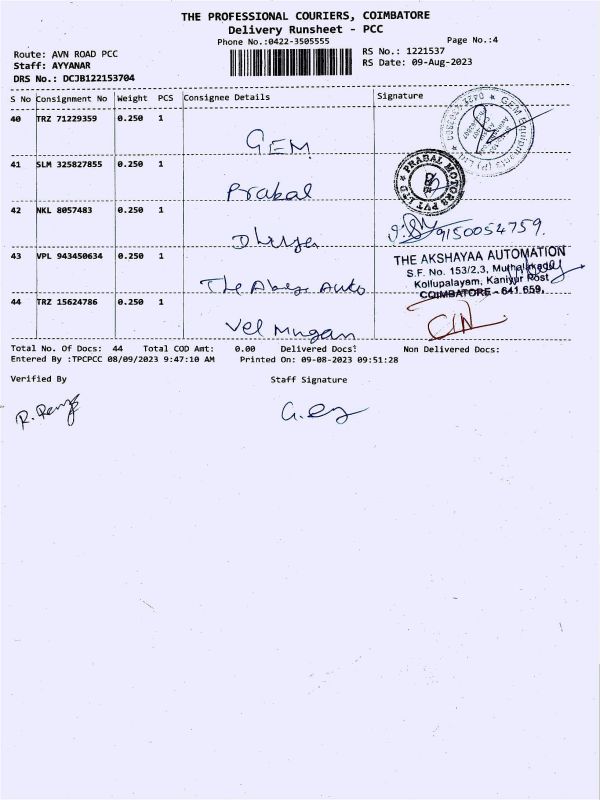 THE PROFESSIONAL COURIERS, COIMBATORE
Delivery Runsheet - PCC
Phone No.:0422-3505555
Page No.:4
Route: AVN ROAD PCC
RS No.: 1221537
Staff: AYYANAR
RS Date: 09-Aug-2023
DRS No.: DCJB122153704
S No Consignment No Weight PCS Consignee Details Signature
40 TRZ 71229359 0.250 1
GEM
GEM Equipments (P) Ltd
41 SLM 325827855 0.250 1
Prabal
PRABAL MOTORS PVT LTD
42 NKL 8057483 0.250 1
9150054759.
43 VPL 943450634 0.250 1
The Auto
THE AKSHAYAA AUTOMATION
S.F. No. 153/2,3,
Kollupalayam, Kaniyur Post
COIMBATORE - 641 659.
44 TRZ 15624786 0.250 1
Vel Mugan
Total No. Of Docs: 44 Total COD Amt: 0.00 Delivered Docs: Non Delivered Docs:
Entered By :TPCPCC 08/09/2023 9:47:10 AM Printed On: 09-08-2023 09:51:28
Verified By Staff Signature